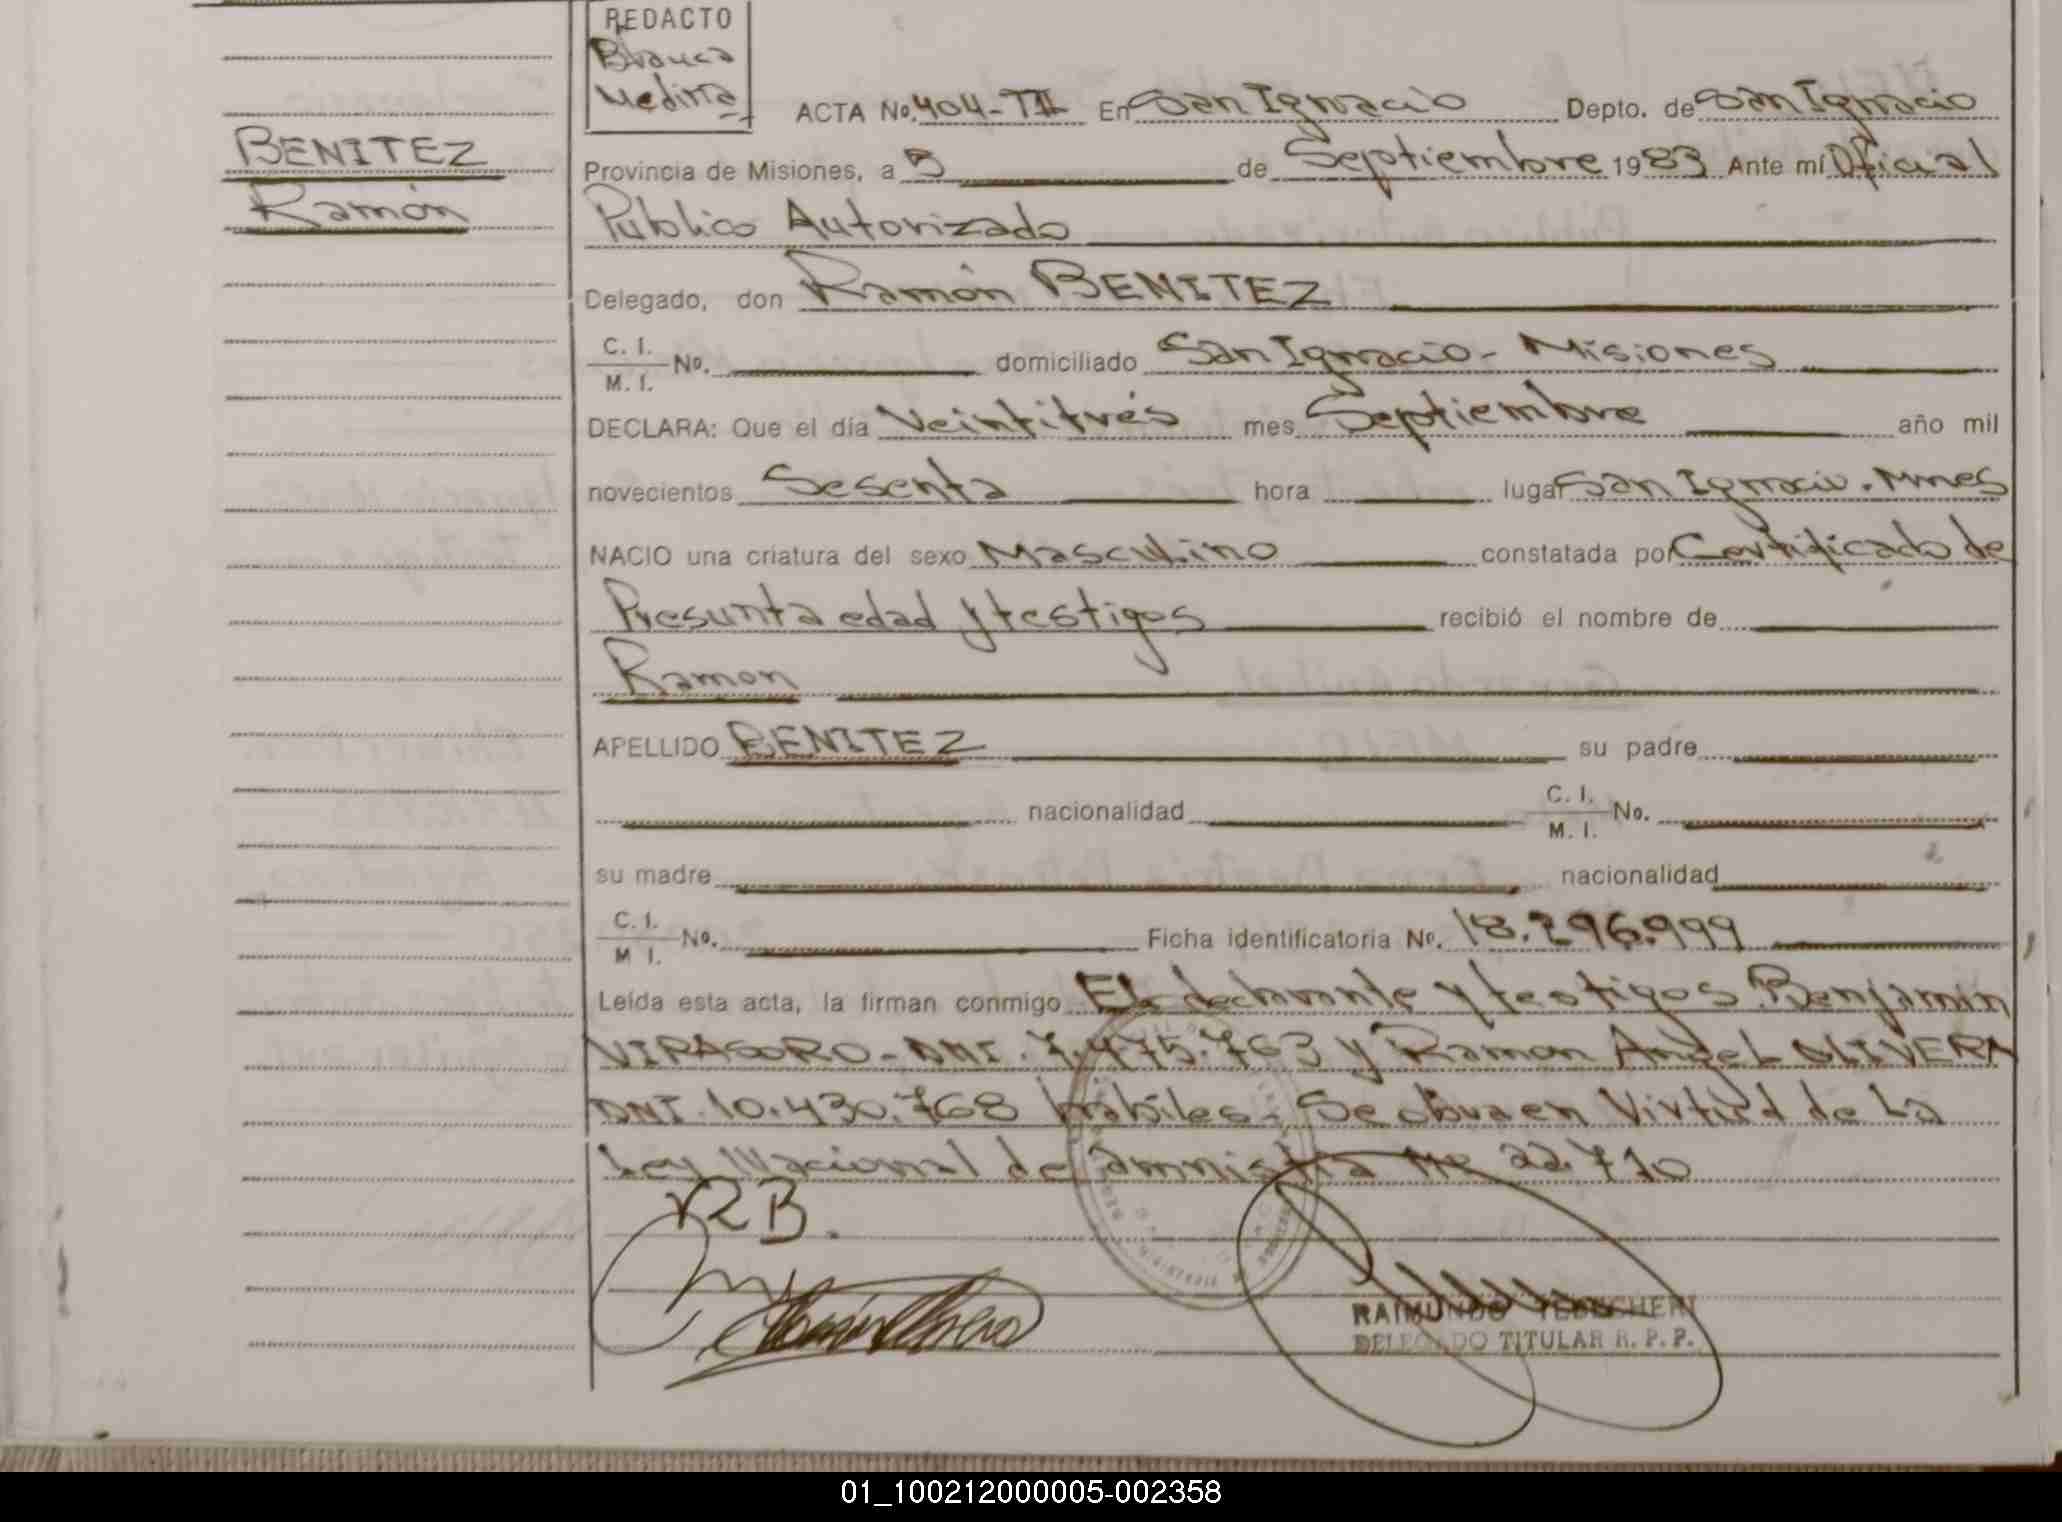 REDACTO
Blanca
Medina
ACTA No. 404-TII En San Ignacio Depto. de San Ignacio
BENITEZ
Ramón
Provincia de Misiones, a 5 de Septiembre 1983 Ante mí Oficial
Publico Autorizado
Delegado, don Ramón BENITEZ
C. I.
M. I. No. domiciliado San Ignacio - Misiones
DECLARA: Que el día Veintitrés mes Septiembre año mil
novecientos Sesenta hora lugar San Ignacio. Mnes
NACIO una criatura del sexo Masculino constatada por Certificado de
Presunta edad y testigos recibió el nombre de
Ramon
APELLIDO BENITEZ su padre
nacionalidad C. I.
M. I. No.
su madre nacionalidad
C. I.
M I. No. Ficha identificatoria No. 18.296.999
Leída esta acta, la firman conmigo El declarante y testigos Benjamín
VIRASORO - DNI. 7.475.763 y Ramon Angel OLIVERA
DNI. 10.430.768 habiles - Se obra en Virtud de La
Ley Nacional de amnistia Nº 22.710
RB.
RAIMUNDO TEDESCHERI
DELEGADO TITULAR R. P. P.
01_100212000005-002358